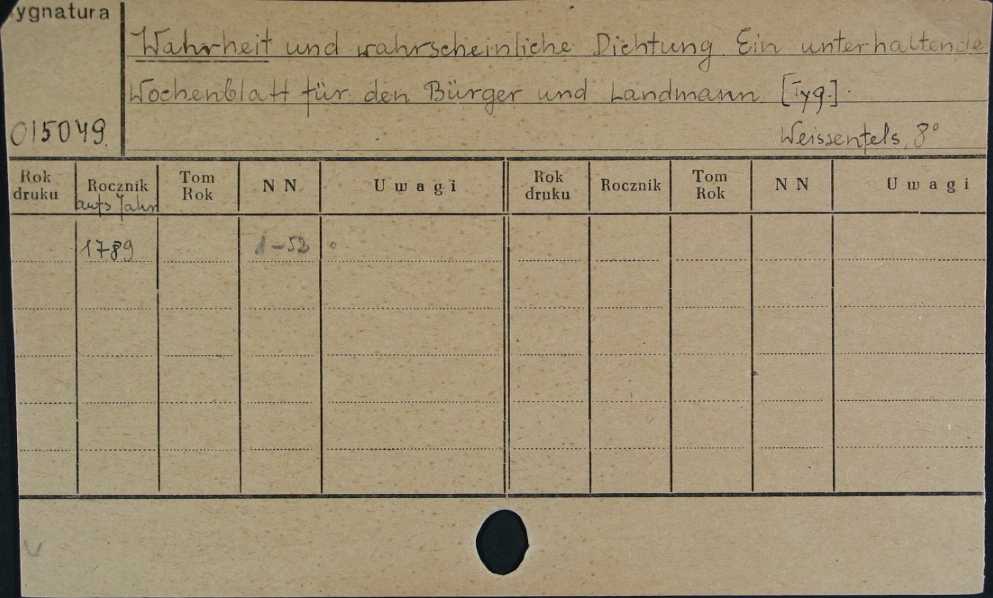 ygnatura
Wahrheit und wahrscheinliche Dichtung Ein unterhaltende
Wochenblatt für den Bürger und Landmann [Tyg.]
015049.
Weissenfels, 8°
Rok druku Rocznik Tom Rok NN Uwagi Rok druku Rocznik Tom Rok NN Uwagi
aufs Jahr
1789 1-52